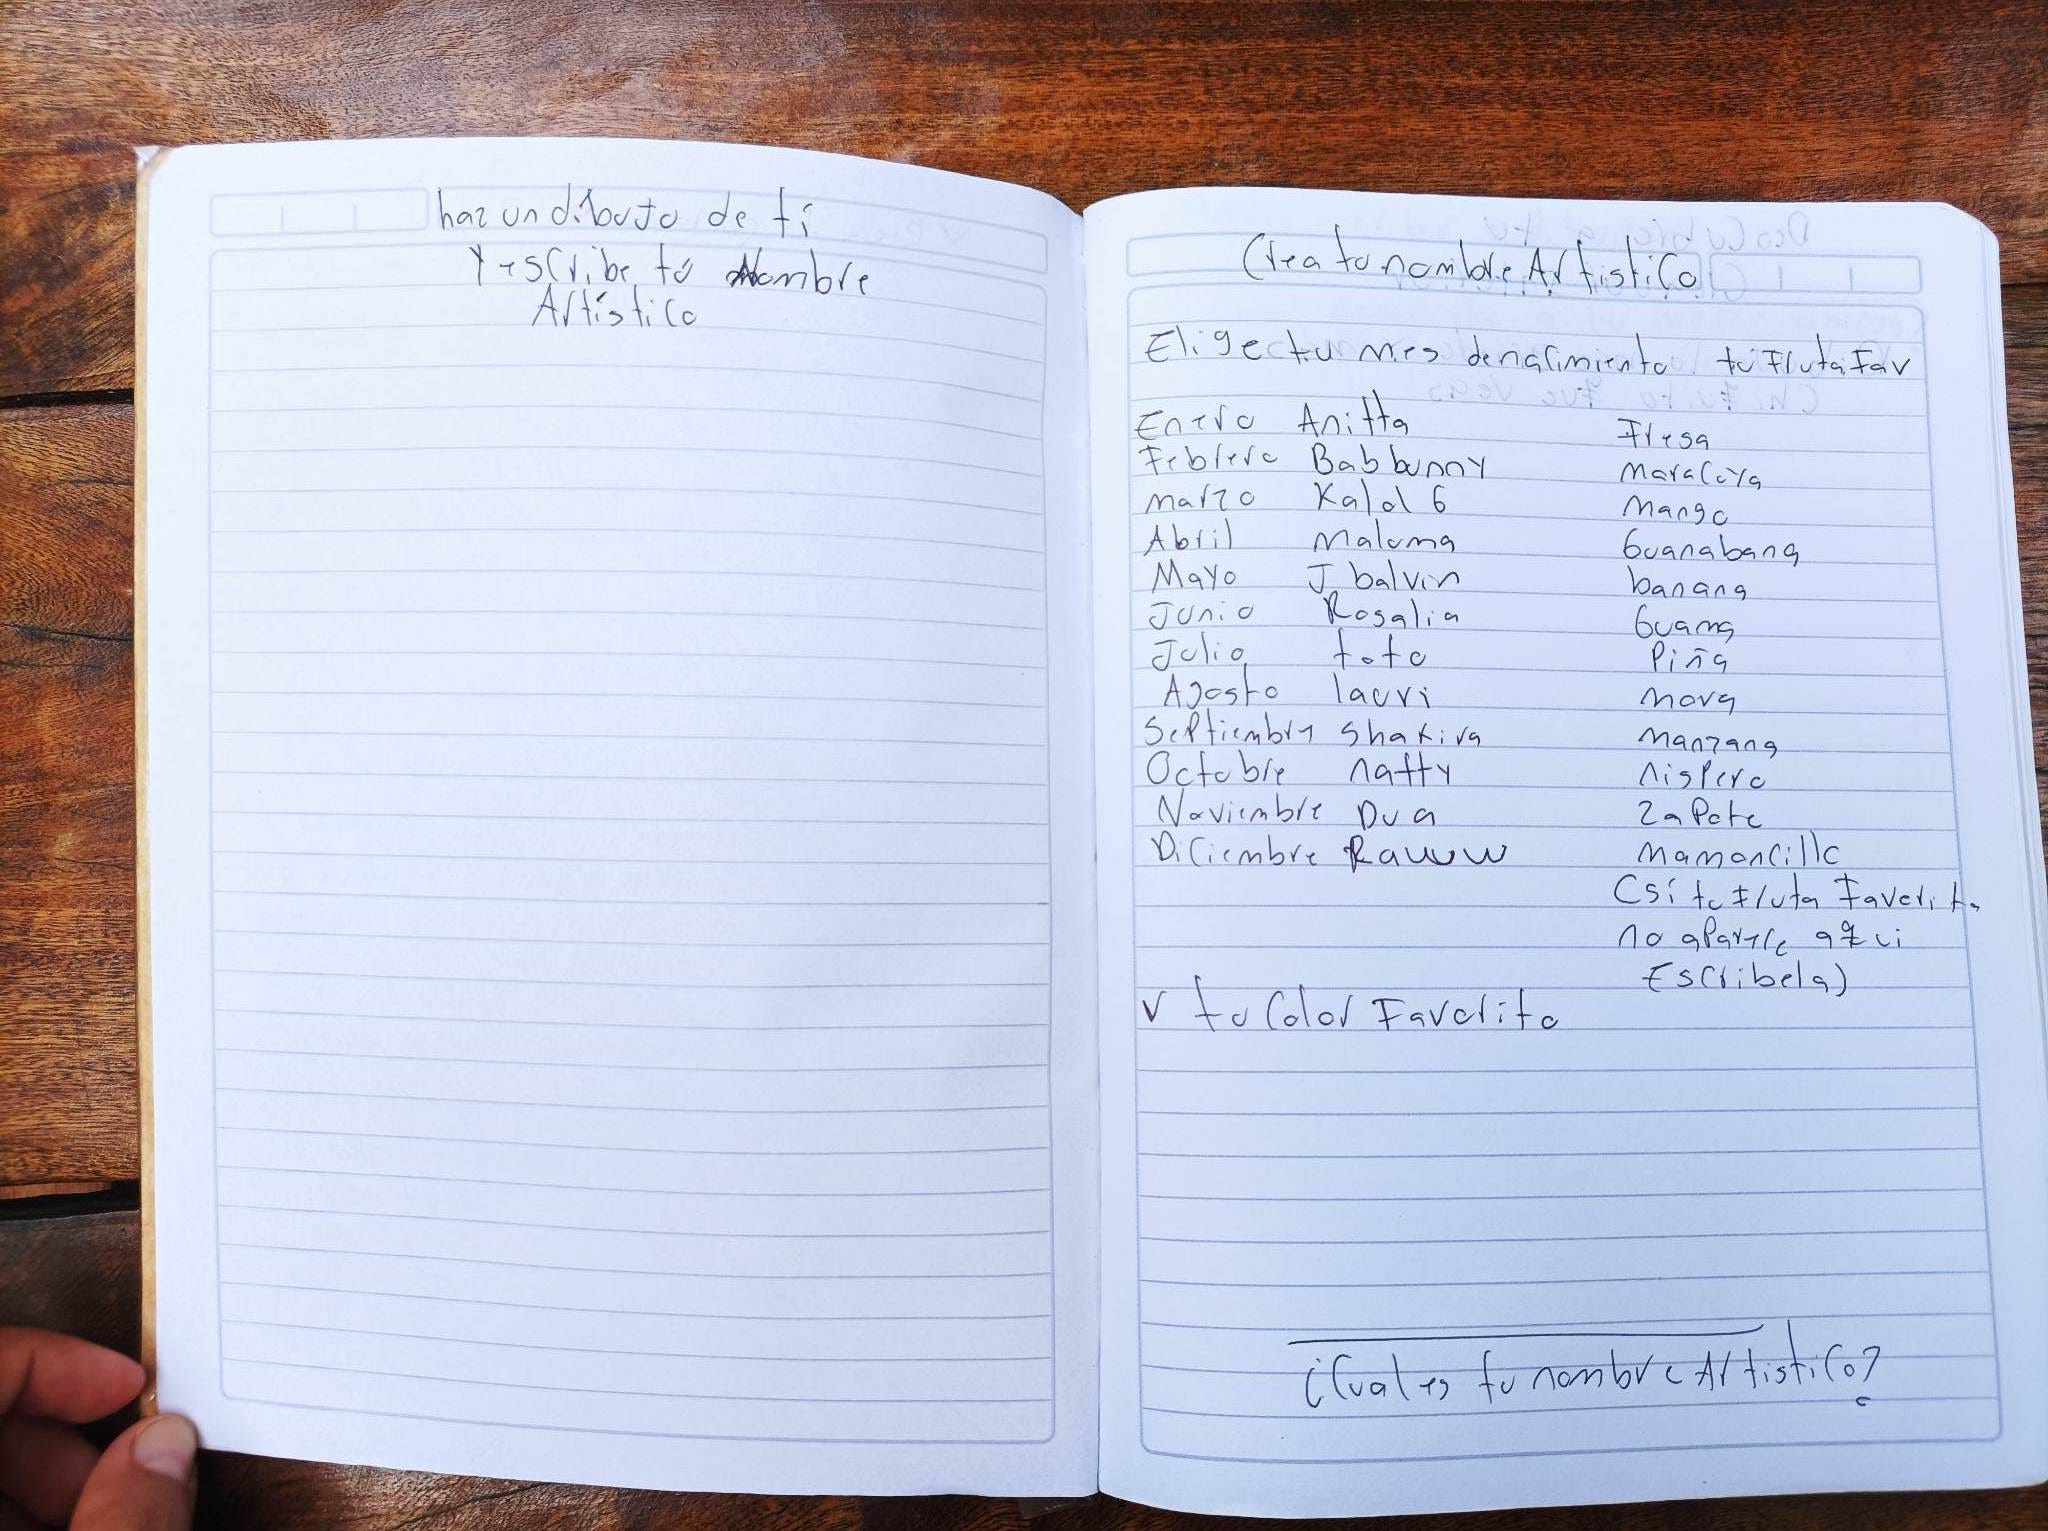 haz un dibujo de tí
Y escribe tú Nombre
Artístico
Crea tu nombre Artistico
Elige tu mes de nacimiento tú Fruta Fav
Enero Anitta Fresa
Febrero Bab bunny Maracoya
Marzo Kald G Mango
Abril Maluma Guanabana
Mayo J balvin banana
Junio Rosalia Guama
Julio toto Piña
Agosto lauri Mora
Septiembre Shakira Manzana
Octubre natty nispero
Noviembre Dua Zapote
Diciembre Rauww Mamoncillo
(sí tu Fruta Favorita
no aparece aqui
Escribela)
Y tu Color Favorito
¿Cual es tu nombre Artistico?